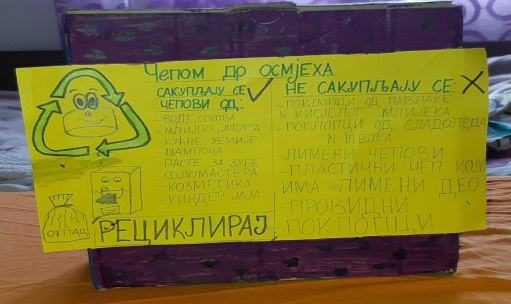 Чепом до осмјеха
САКУПЉАЈУ СЕ
ЧЕПОВИ ОД:
- ВОДЕ, СОКОВА
- МЛИЈЕКА, ЈОГУРТА
- КУЋНЕ ХЕМИЈЕ
- ШАМПОНА
- ПАСТЕ ЗА ЗУБЕ
- ФЛОМАСТЕРА
- КОЗМЕТИКА
- КИНДЕР ЈАЈА
НЕ САКУПЉАЈУ СЕ:
- ПОКЛОПЦИ ОД ПАВЛАКЕ
И КИСЈЕЛОГ МЛИЈЕКА
- ПОКЛОПЦИ ОД СЛАДОЛЕДА
ЛИМЕНИ ЧЕПОВИ
- ПЛАСТИЧНИ ЧЕП КОЈИ
ИМА ЛИМЕНИ ДЕО
- ПРОВИДНИ
ПОКЛОПЦИ
ОТПАД
РЕЦИКЛИРАЈ